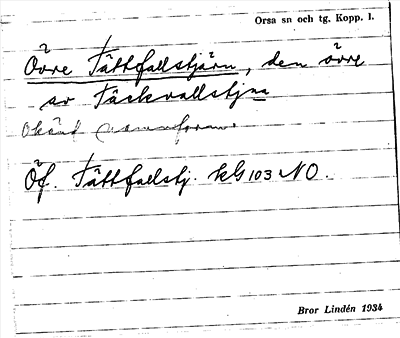 Orsa sn och tg. Kopp. l.
Övre Tättfallstjärn, den övre
av Täckvallstjna
Okänd namnform.
Öf. Tättfallstj. kG 103 NO.
Bror Lindén 1934